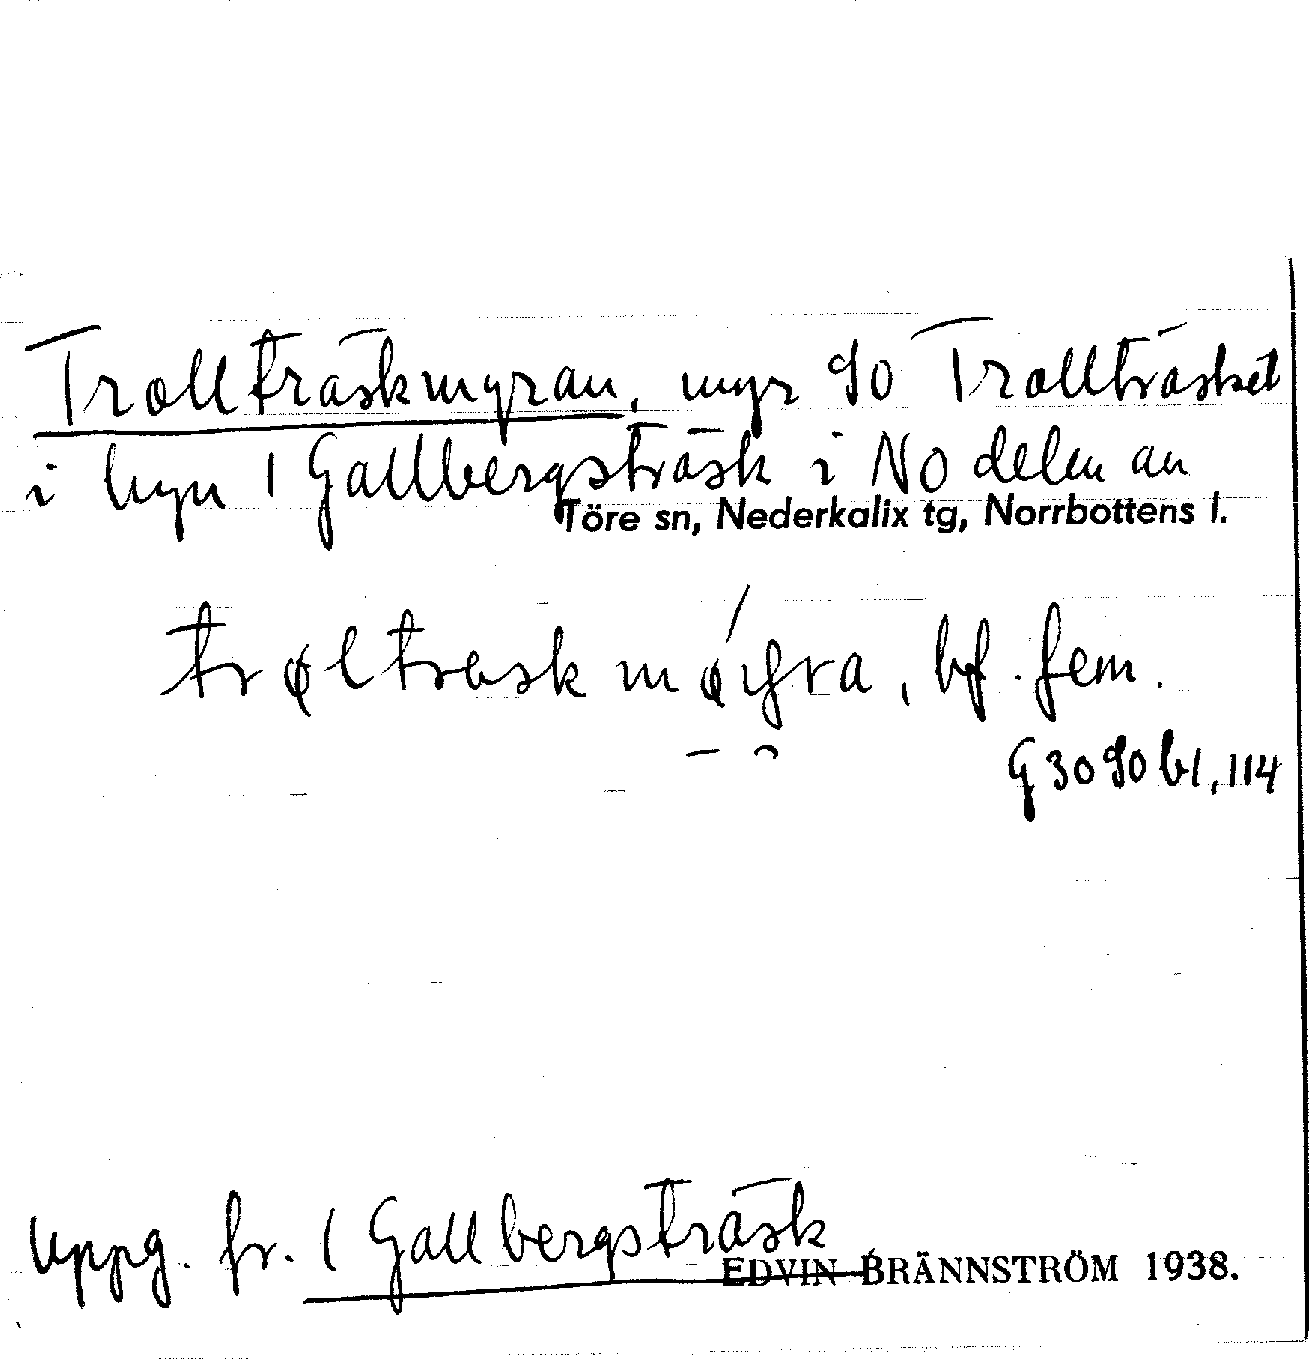 Trollträskmyran, myr SO Trollträsket
i byn 1 Gallbergsträsk i NO delen av
Töre sn, Nederkalix tg, Norrbottens l.
bf. fem.
G 3090 bl, 114
Uppg. fr. 1 Gallbergsträsk
EDVIN BRÄNNSTRÖM 1938.